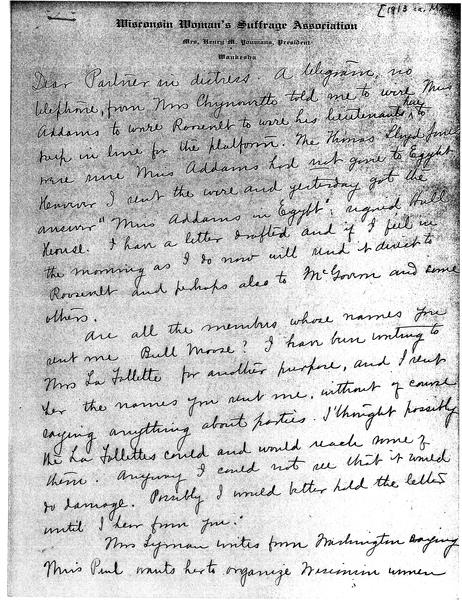 [1913 ca. M
Wisconsin Woman's Suffrage Association
Mrs. Henry M. Youmans, President
Waukesha
Dear Partner in distress. A telegram, no
telephone, from Mrs Chynoweth told me to wire Miss
Addams to wire Roosevelt to wire his lieutenants here to
keep in line for the platform. The Thomas Lloyd Jones
were sure Miss Addams had not gone to Egypt.
However I sent the wire and yesterday got the
answer "Miss Addams in Egypt": signed Hull
House. I have a letter drafted and if I feel in
the morning as I do now will send it direct to
Roosevelt and perhaps also to McGovern and some
others.
Are all the members whose names you
sent me Bull Moose? I have been writing to
Mrs La Follette for another purpose, and I sent
her the names you sent me, without of course
saying anything about parties. I thought possibly
the La Follettes could and would reach some of
them. Anyway I could not see that it would
do damage. Possibly I would better hold the letter
until I hear from you.
Mrs Lyman writes from Washington saying
Miss Paul wants her to organize Wisconsin women